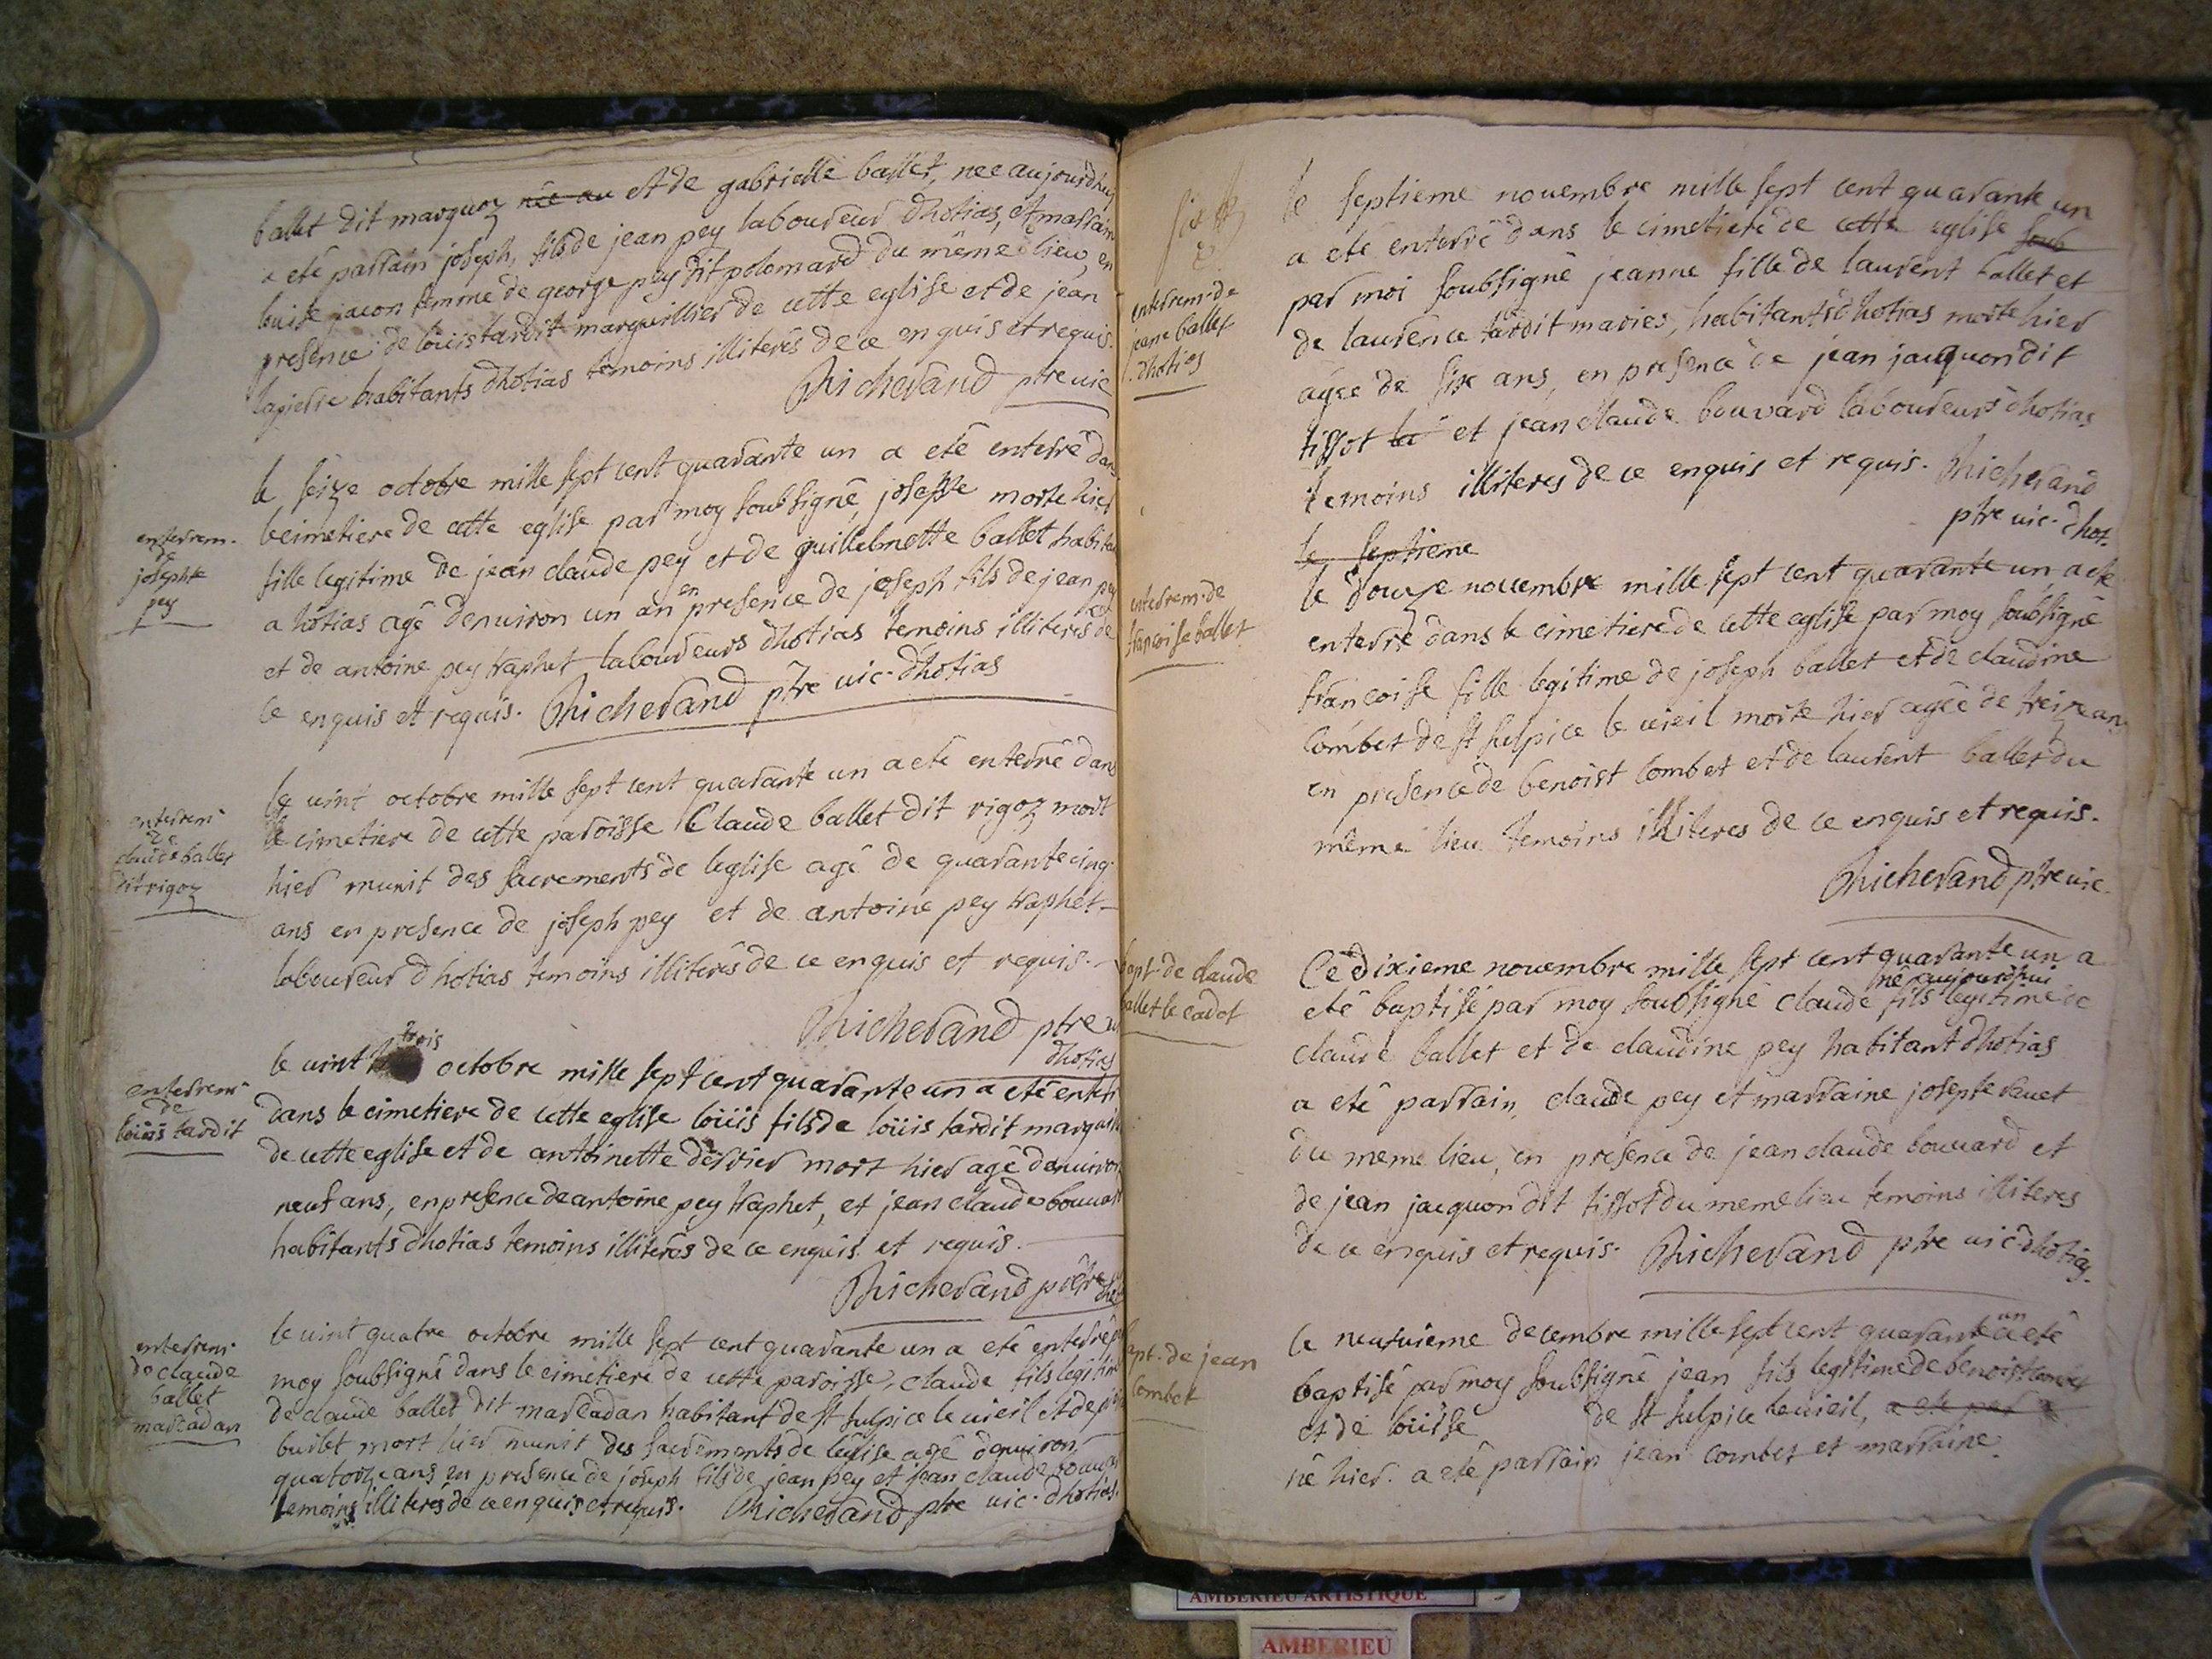 ballet dit marquoz née au et de gabrielle ballet, nee aujourdhuy
a eté parrain joseph, fils de jean pey laboureur dhotias, et marraine
louise jacon femme de george pey dit polomard du même lieu, en
presence de loüis tardit marguillier de cette eglise et de jean
lapierre habitants dhotias temoins illiterés de ce enquis et requis.
Richerand ptre vic
enterrem.
de
josephte
pey
le seize octobre mille sept cent quarante un a eté enterré dans
le cimetiere de cette eglise par moy soubsigné, josephte morte hier
fille legitime de jean claude pey et de guillelmette ballet habitants
a hotias agé denuiron un an en presence de joseph fils de jean pey
et de antoine pey traphet laboureurs dhotias temoins illiteres de
ce enquis et requis. Richerand ptre vic. dhotias
enterrem
de
claude ballet
dit rigoz
le vint octobre mille sept cent quarante un a eté enterré dans
le cimetiere de cette paroisse Claude ballet dit rigoz mort
hier munit des sacrements de leglise agé de quarante cinq
ans en presence de joseph pey et de antoine pey traphet
laboureur dhotias temoins illiterés de ce enquis et requis.
Richerand ptre vic
dhotias
enterrem
de
loüis tardit
le vint trois octobre mille sept cent quarante un a eté enterré
dans le cimetiere de cette eglise loüis fils de loüis tardit marguill
de cette eglise et de antoinette dervier mort hier agé denuiron
neuf ans, en presence de antoine pey traphet, et jean claude bouvard
habitants dhotias temoins illiterés de ce enquis et requis.
Richerand prêtre
enterrem.
de claude
ballet
marcadan
le vint quatre octobre mille sept cent quarante un a eté enterré par
moy soubsigné dans le cimetiere de cette paroisse, claude fils legitime
de claude ballet dit marcadan habitant de st sulpice le vieil et de
burlet mort hier munit des sacrements de leglise agé denuiron
quatorze ans, en presence de joseph fils de jean pey et jean claude bouvard
temoins illiteres de ce enquis et requis. Richerand ptre vic. dhotias.
enterrem. de
jeane ballet
dhotias
le septieme nouembre mille sept cent quarante un
a eté enterré dans le cimetiere de cette eglise soub
par moi soubsigné jeanne fille de laurent ballet et
de laurence tardit mariés, habitants dhotias morte hier
agée de six ans, en presence de jean jacquon dit
tissot la et jean claude bouvard laboureurs dhotias
temoins illiteres de ce enquis et requis. Richerand
ptre vic. dhot.
le septieme
enterrem. de
francoise ballet
le douze nouembre mille sept cent quarante un a eté
enterré dans le cimetiere de cette eglise par moy soubsigné
francoise fille legitime de joseph ballet et de claudine
combet de st sulpice le vieil morte hier agée de treize ans
en presence de benoist combet et de laurent ballet du
même lieu temoins illiteres de ce enquis et requis.
Richerand ptre vic.
bapt. de claude
ballet le cadet
Ce dixieme nouembre mille sept cent quarante un a
eté baptisé par moy soubsigné claude né aujourdhui fils legitime de
claude ballet et de claudine pey habitant dhotias
a eté parrain, claude pey et marraine josephte
du meme lieu, en présence de jean claude bouvard et
de jean jacquon dit tissot du meme lieu temoins illiteres
de ce enquis et requis. Richerand ptre vic. dhotias.
bapt. de jean
combet
le neufuieme decembre mille sept cent quarante un a eté
baptisé par moy soubsigné jean fils legitime de benoist combet
et de loüise de st sulpice le vieil, a eté par
né hier. a eté parrain jean combet et marraine
AMBERIEU ARTISTIQUE
AMBERIEU